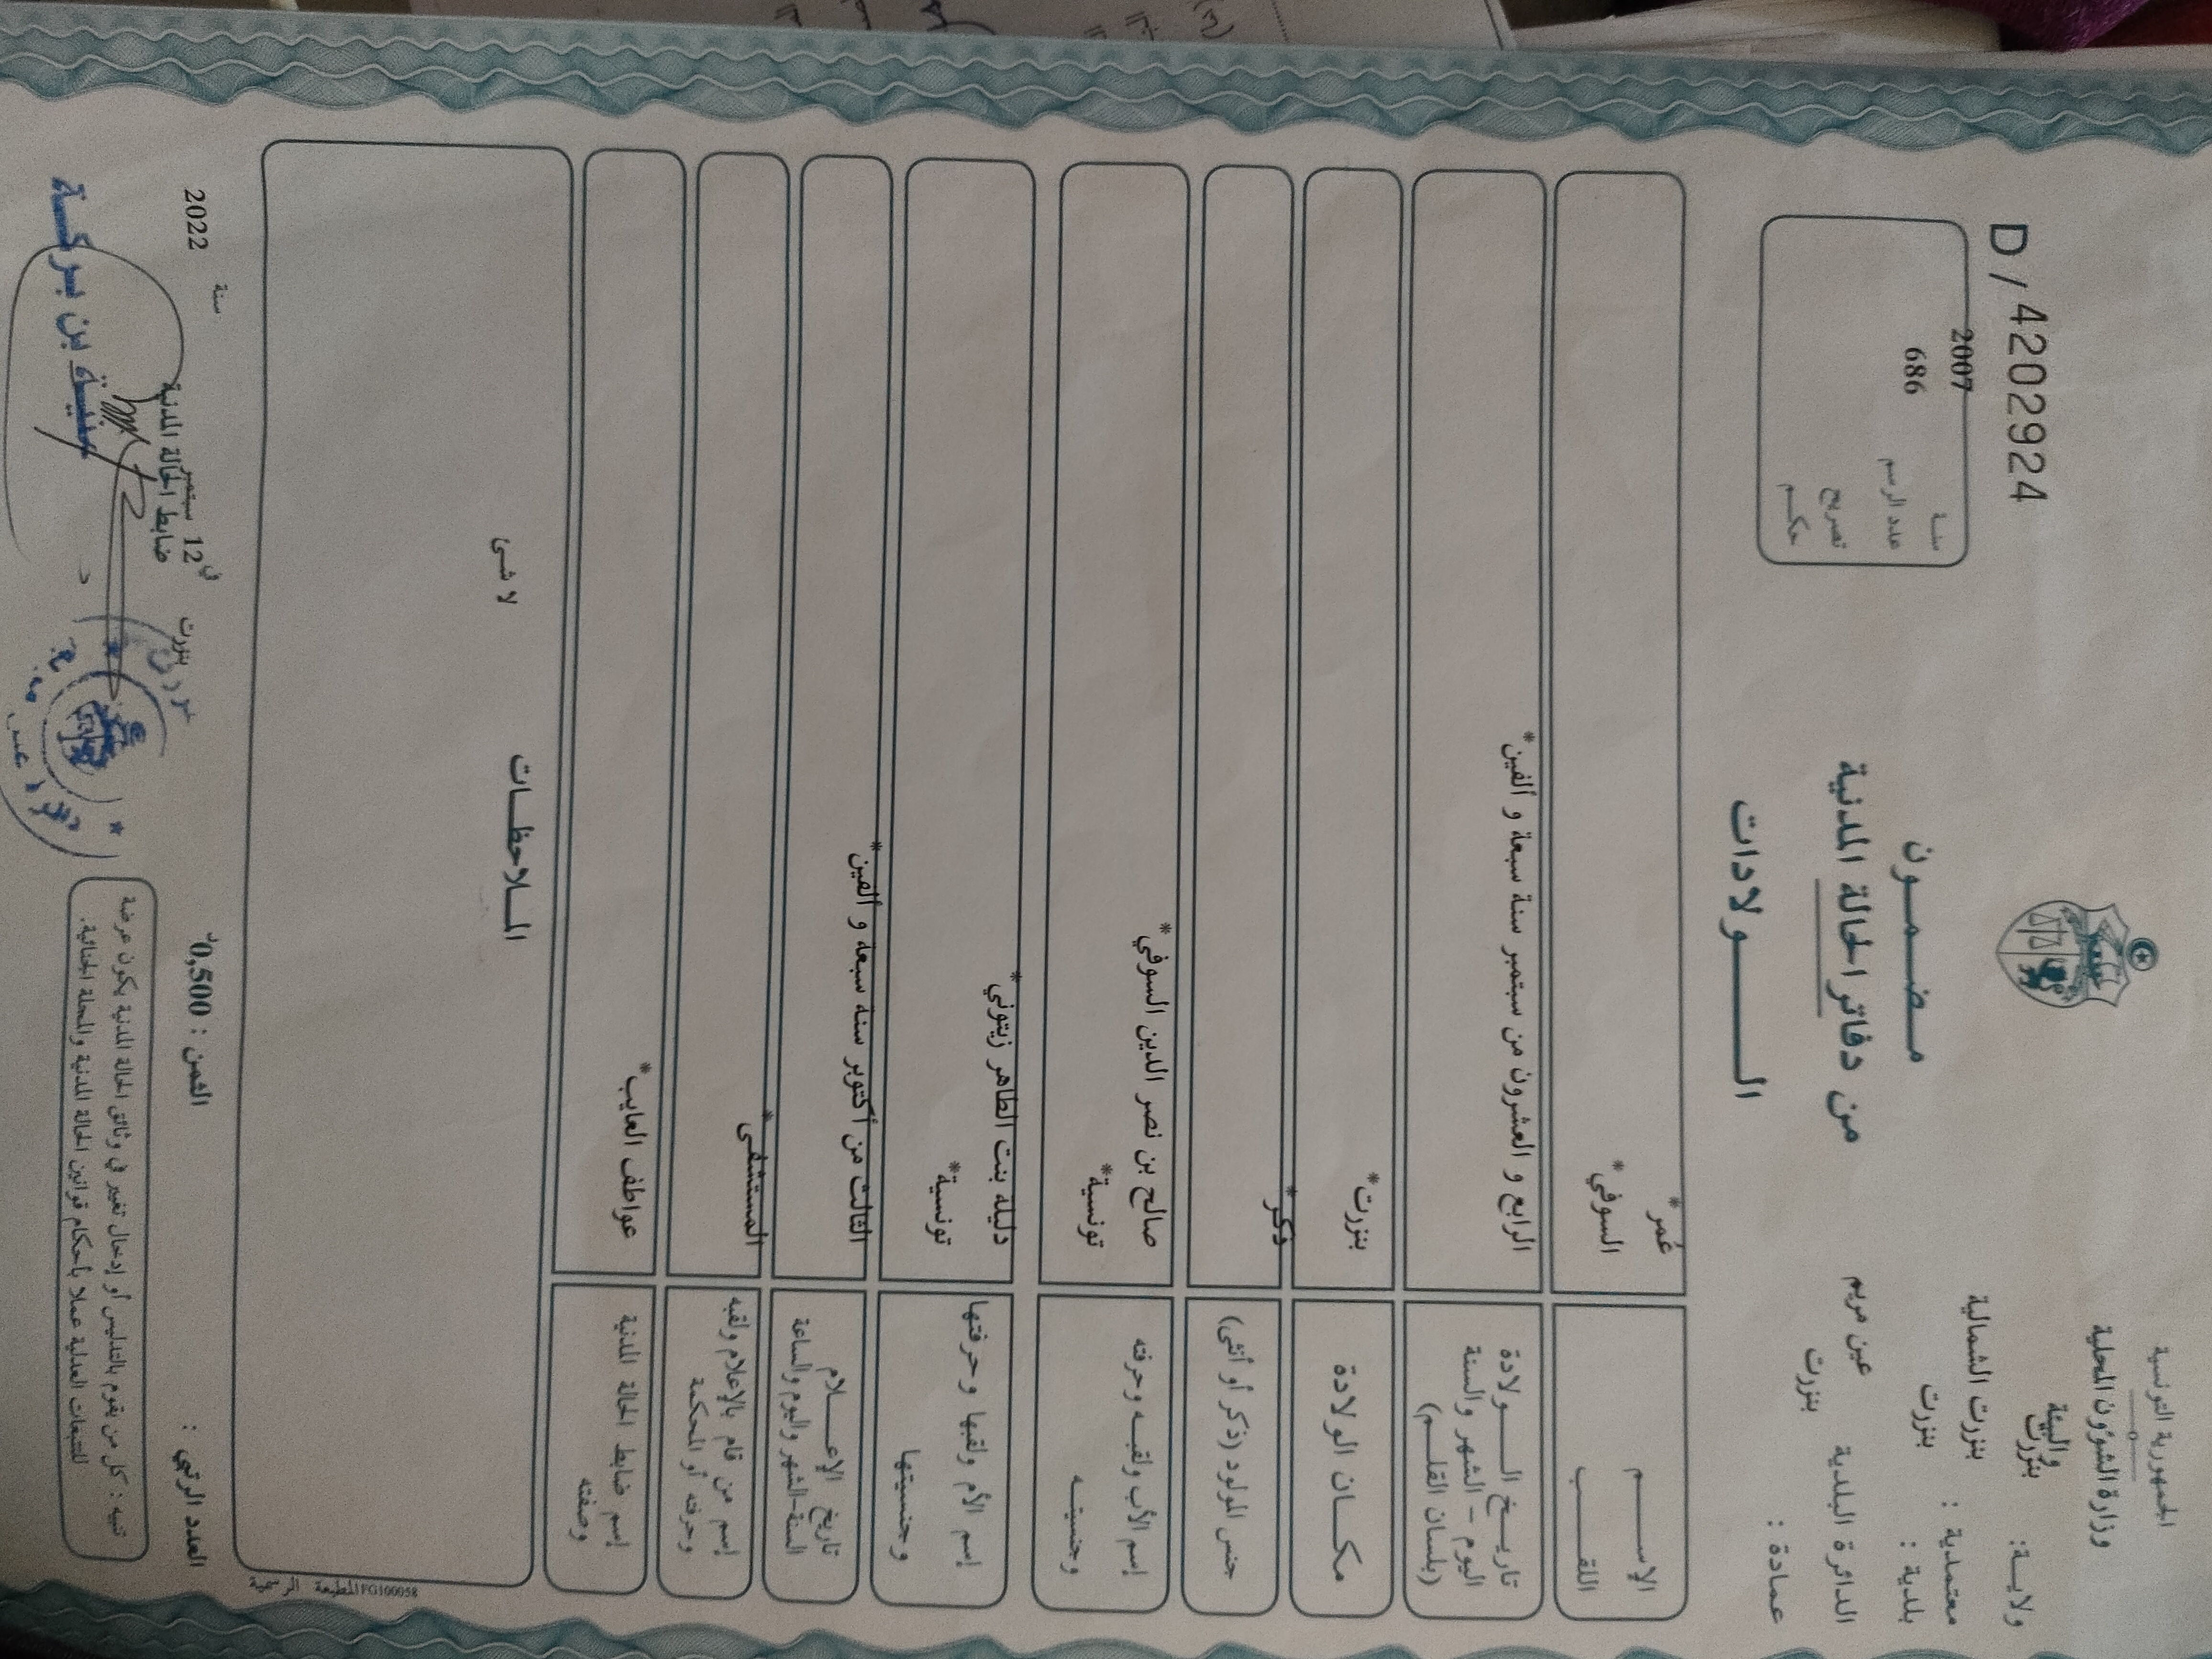 الجمهورية التونسية
وزارة الشؤون المحلية
والبيئة
ولايــة: بنزرت
معتمدية : بنزرت الشمالية
بلدية : بنزرت
الدائرة البلدية عين مريم
عمادة : بنزرت
D / 4202924
سنـة 2007
عدد الرسم 686
تصريح
حكــم
مـضـمــون
من دفاتر الحالة المدنية
الــــولادات
الإســــم عُمر*
اللقــــب السوفي*
تاريــخ الــــولادة
اليوم – الشهر والسنة
(بلسان القلــم)
الرابع و العشرون من سبتمبر سنة سبعة و ألفين*
مكــان الولادة بنزرت*
جنس المولود (ذكر أو أنثى) ذكر*
إسم الأب ولقبـه وحرفته صالح بن نصر الدين السوفي*
وجنسيتــه تونسية*
إسم الأم ولقبها وحرفتها دليلة بنت الطاهر زيتوني*
وجنسيتها تونسية*
تاريخ الإعــــلام
السنة-الشهر واليوم والساعة
الثالث من أكتوبر سنة سبعة و ألفين*
إسم من قام بالإعلام ولقبه
وحرفته أو المحكمة
المستشفى*
إسم ضابط الحالة المدنية عواطف العايب*
وصفته
المــلاحظــات
لا شئ
المطبعة الرسمية IFG100058
العدد الرتبي :
الثمن : 0,500د
بنزرت في 12 سبتمبر سنة 2022
ضابط الحالة المدنية
منية بن بركة
تنبيه : كل من يقوم بالتدليس أو إدخال تغيير في وثائق الحالة المدنية يكون عرضة
للتتبعات العدلية عملا بأحكام قوانين الحالة المدنية والمجلة الجنائية.